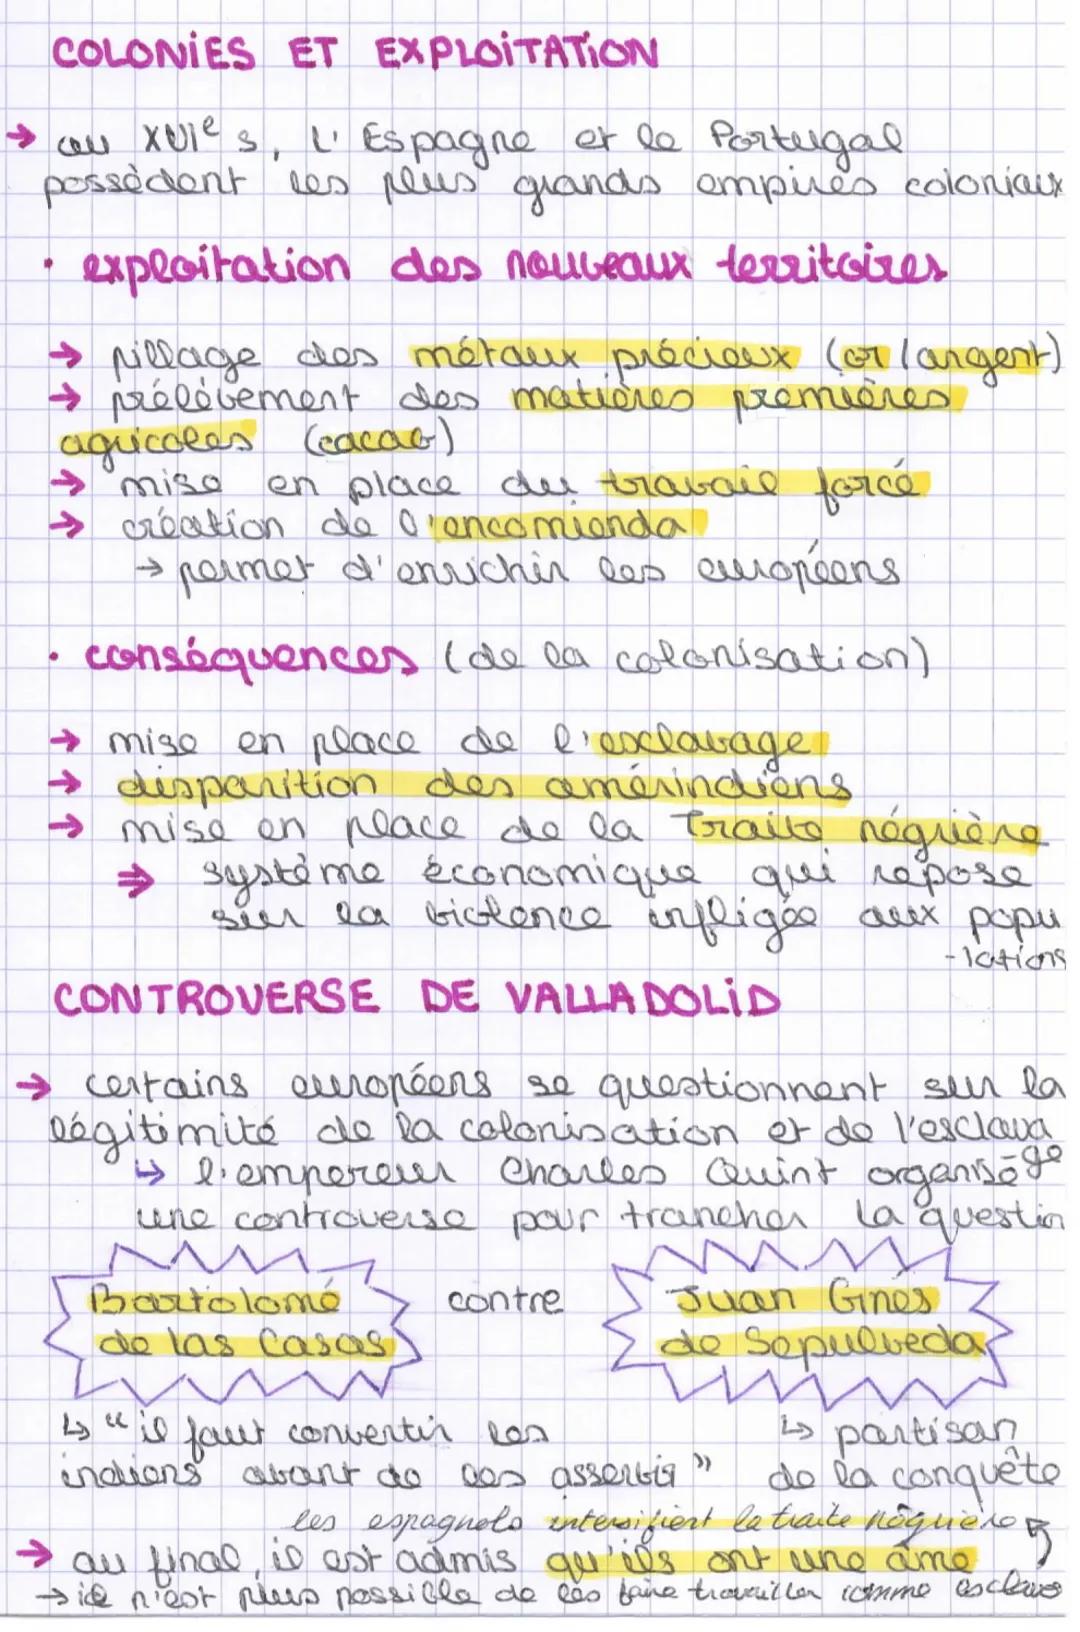 COLONIES ET EXPLOITATION
→ au XVIe s, l'Espagne et le Portugal
possèdent les plus grands empires coloniaux
· exploitation des nouveaux territoires
→ pillage des métaux précieux (or/argent)
→ prélèvement des matières premières
agricoles (cacao)
→ mise en place du travail forcé
→ création de l'encomienda
→ permet d'enrichir les européens
· conséquences (de la colonisation)
→ mise en place de l'esclavage
→ disparition des amérindiens
→ mise en place de la Traite négrière
⇒ système économique qui repose
sur la violence infligée aux popu
-lations
CONTROVERSE DE VALLADOLID
→ certains européens se questionnent sur la
légitimité de la colonisation et de l'esclava
ge
↳ l'empereur Charles Quint organise
une controverse pour trancher la questin
Bartolomé contre Juan Ginés
de las Casas de Sepulveda
↳ "il faut convertir les ↳ partisan
indiens avant de les asservir" de la conquête
les espagnols intensifient la traite négrière
→ au final, il est admis qu'ils ont une âme
→ il n'est plus possible de les faire travailler comme esclaves